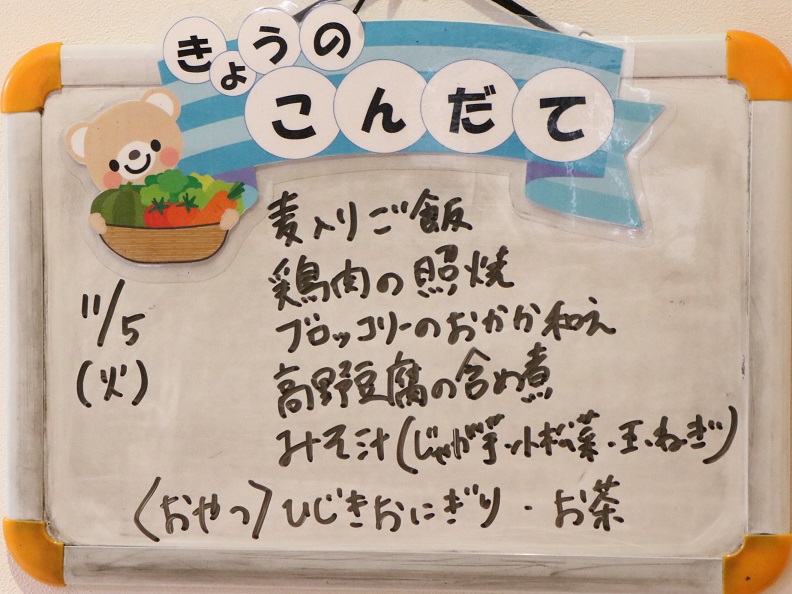 きょうの
こんだて
麦入りご飯
鶏肉の照焼
11/5
ブロッコリーのおかか和え
(火)
高野豆腐の含め煮
みそ汁(じゃが芋・小松菜・玉ねぎ)
〈おやつ〉ひじきおにぎり・お茶